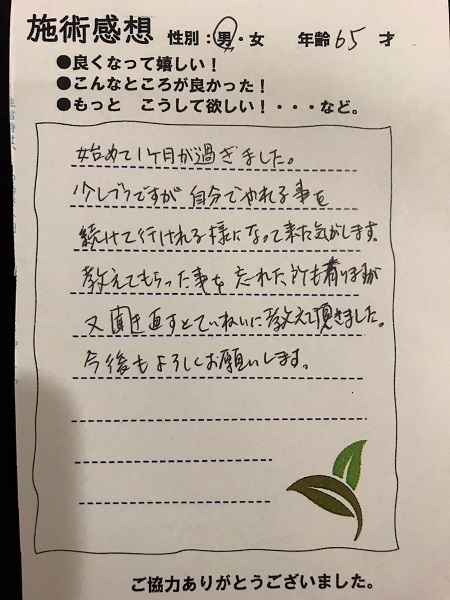 施術感想 性別：男・女 年齢 65 才
●良くなって嬉しい！
●こんなところが良かった！
●もっと こうして欲しい！・・・など。
始めて1ケ月が過ぎました。
少しづつですが自分でやれる事を
続けて行けれる様になって来た気がします。
教えてもらった事を忘れた時も有りますが
又聞き直すとていねいに教えて頂きました。
今後もよろしくお願いします。
ご協力ありがとうございました。